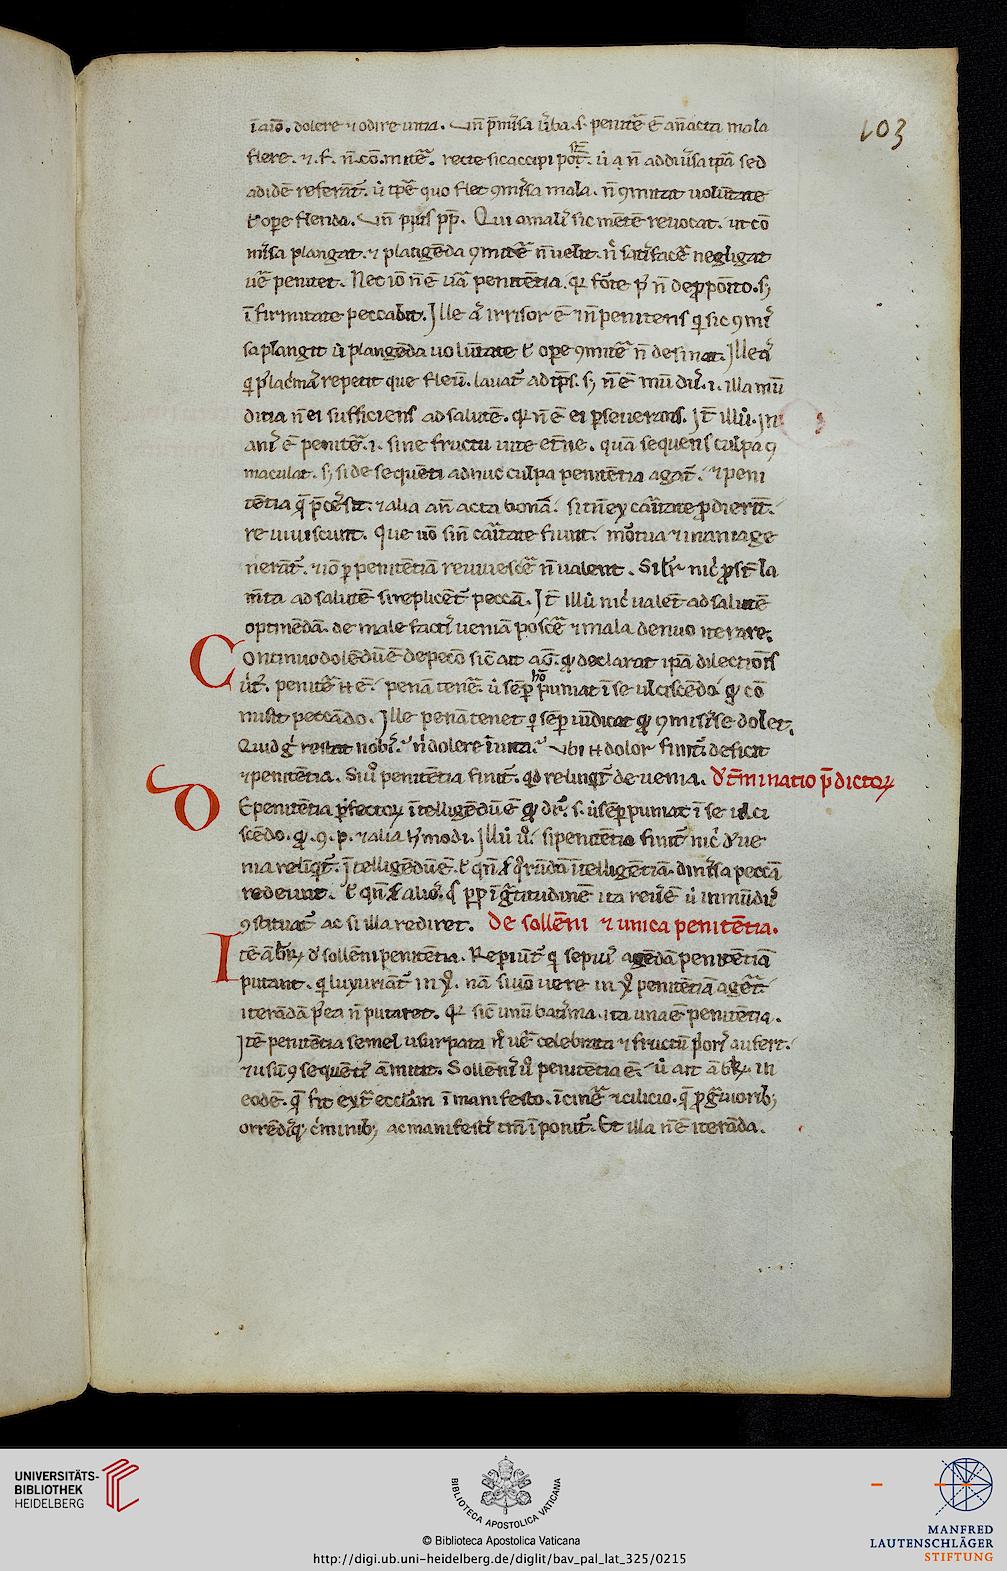 103
i aīo. dolere ⁊ odire uitia. Vn̄ p̄miſſa uͥba. ſ. penitē ē an̄acta mala
flere. ⁊. f. n̄. cō. mitē. recte ſic accipi pōt. ad diuſa tp̄a sed
ad idē referāt. ut tp̄e quo flet ꝯmiſſa mala. n̄ ꝯmittat uolūtate
ł ope flenda. Vn̄ pp̄. Qui amaliſ sic mētē reuocat. ut cō
miſſa plangat. ⁊ plangēda ꝯmittē n̄ uelit. satiſfacē negligat
uē penitet. Nec iō n̄ ē uā penitētia. qꝛ fōte p̄ n̄ de ꝓpoſito. sꝫ
ī firmitate peccabit. Ille aū irriſor ē ⁊ īpenitenſ qͥ sic ꝯmiſ
ſa plangit ut plangēda uolūtate ł ope ꝯmittē n̄ deſinat. Ille
qͥ p̄ lacͥmaſ repetit que fleu. lauat ad tp̄ſ. sꝫ n̄ ē mūduſ. i. illa mū
ditia n̄ ei ſufficienſ ad ſalutē. qꝛ n̄ ē ei pſeueranſ. It̄ illuͩ. In
aniſ ē penitē. i. ſine fructu uite et̄ne. quā ſequenſ culpa ꝯ
maculat. sꝫ ſi de ſequēti adhuc culpa penitētia agat. ⁊ peni
tētia q̄ p̄ceſſit. ⁊ alia an̄ acta bona. ſi t̄n ex caritate ꝓdierūt.
reuiuiſcunt. Que uō ſin̄ caritate fiunt. mōtua ⁊ inania ge
nerāt. ⁊ iō per penitētiā reuiueſcē n̄ ualent. Silͬ nicͥ ꝓſt̄ la
m̄ta ad ſalutē ſi replicēt pecca. It̄ illuͩ nicͥ ualet ad ſalutē
optinēdā. de male factiſ ueniā poſcē ⁊ mala denuo iterare.
Continuo dolēdū ē de pecō sic ait aḡ. declarat ipā dilectionſ
penitē ē. penā tenē. ut ſēp puniat ī ſe ulciſcēdo qͩ cō
miſit peccādo. Ille penā tenet qͥ ſēp uindicat qͩ ꝯmiſiſſe dolet.
Quid gͦ reſtat nobiſ. n̄ dolere ī uita. Vbi dolor finit deficit
⁊ penitētia. Si uͦ penitētia finit. qd relinqͥt de uenia. dt̄minatio p̄dictoꝝ
De penitētia pfectoꝝ ītelligēdū ē qͩ dr̄. ſ. ut ſēp puniat ī ſe ulci
ſcēdo. qͩ. ꝯ. p. ⁊ alia hͥ modi. Illuͩ uͦ. ſi penitētia finit nicͥ de ue
nia reliqͥt. ītelligēdū ē. ł qn̄ quorūdā ītelligētiā. dimiſſa pecca
redeunt. ł alioꝝ. pp ī gͣtitudinē ita reuſ ē ut inmūduſ
ꝯſtituat ac ſi illa rediret. de ſollēni ⁊ unica penitētia.
Itē ābꝛꝫ de ſollēni penitētia. Repiunt qͥ ſepiuſ agēdā penitētiā
putant. qͥ luxuriāt in xͦ. nā ſi uō uere in xͦ penitētiā agēt
iterādā p̄ea n̄ putaret. qꝛ sic unū batiſma. ita una ē penitētia.
Itē penitētia ſemel uſurpata n̄ uē celebrata ⁊ fructū p̄oriſ aufert.
⁊ uſū ꝯſequētiſ āmittit. Sollēniſ uͦ penitētia ē. ut ait ābꝛꝫ. in
eodē. q̄ fit ext̄ eccłiam ī manifeſto. ī cinē ⁊ cilicio. q̄ ꝓ gͣuioribꝫ
orrēdiſqꝫ cͥminibꝫ ac manifeſtiſ tm̄ īponit. Et illa n̄ ē iterāda.
UNIVERSITÄTS-
BIBLIOTHEK
HEIDELBERG
BIBLIOTECA APOSTOLICA VATICANA
© Biblioteca Apostolica Vaticana
http://digi.ub.uni-heidelberg.de/diglit/bav_pal_lat_325/0215
MANFRED
LAUTENSCHLÄGER
STIFTUNG